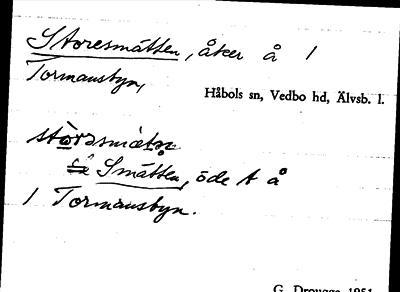 Storesmätten, åker å 1
Tormansbyn,
Håbols sn, Vedbo hd, Älvsb. l.
Smätten, öde t å
1 Tormansbyn.
G. Drougge 1951